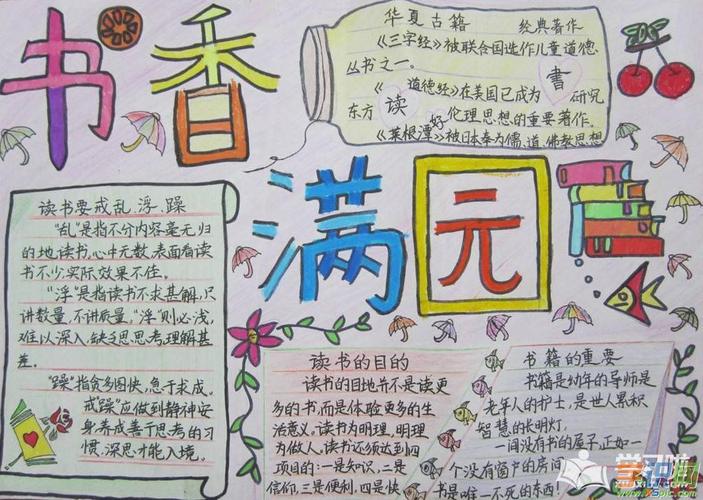 书香
满园
华夏古籍 经典著作
《三字经》被联合国选作儿童道德
丛书之一。
《道德经》在美国已成为研究
东方伦理思想的重要著作。
《菜根潭》被日本奉为儒、道、佛教思想
读好書
读书要戒乱、浮、躁
“乱”是指不分内容毫无归
的地读书,心中无数,表面看读
书不少,实际效果不佳。
“浮”是指读书不求甚解,只
讲数量,不讲质量,“浮”则必浅,
难以深入,缺乏思思考,理解甚
差。
“躁”指贪多图快,急于求成。
戒“躁”应做到静神安
身养成善于思考的习
惯,深思才能入境。
读书的目的
读书的目地并不是读更
多的书,而是体验更多的生
活意义,读书为明理,明理
为做人,读书还须达到四
项目的:一是知识,二是
信仰,三是便利,四是快
书籍的重要
书籍是幼年的导师是
老年人的护士,是世人累积
智慧的长明灯。
一间没有书的屋子,正如一
个没有窗户的房间
书是唯一不死的东西!